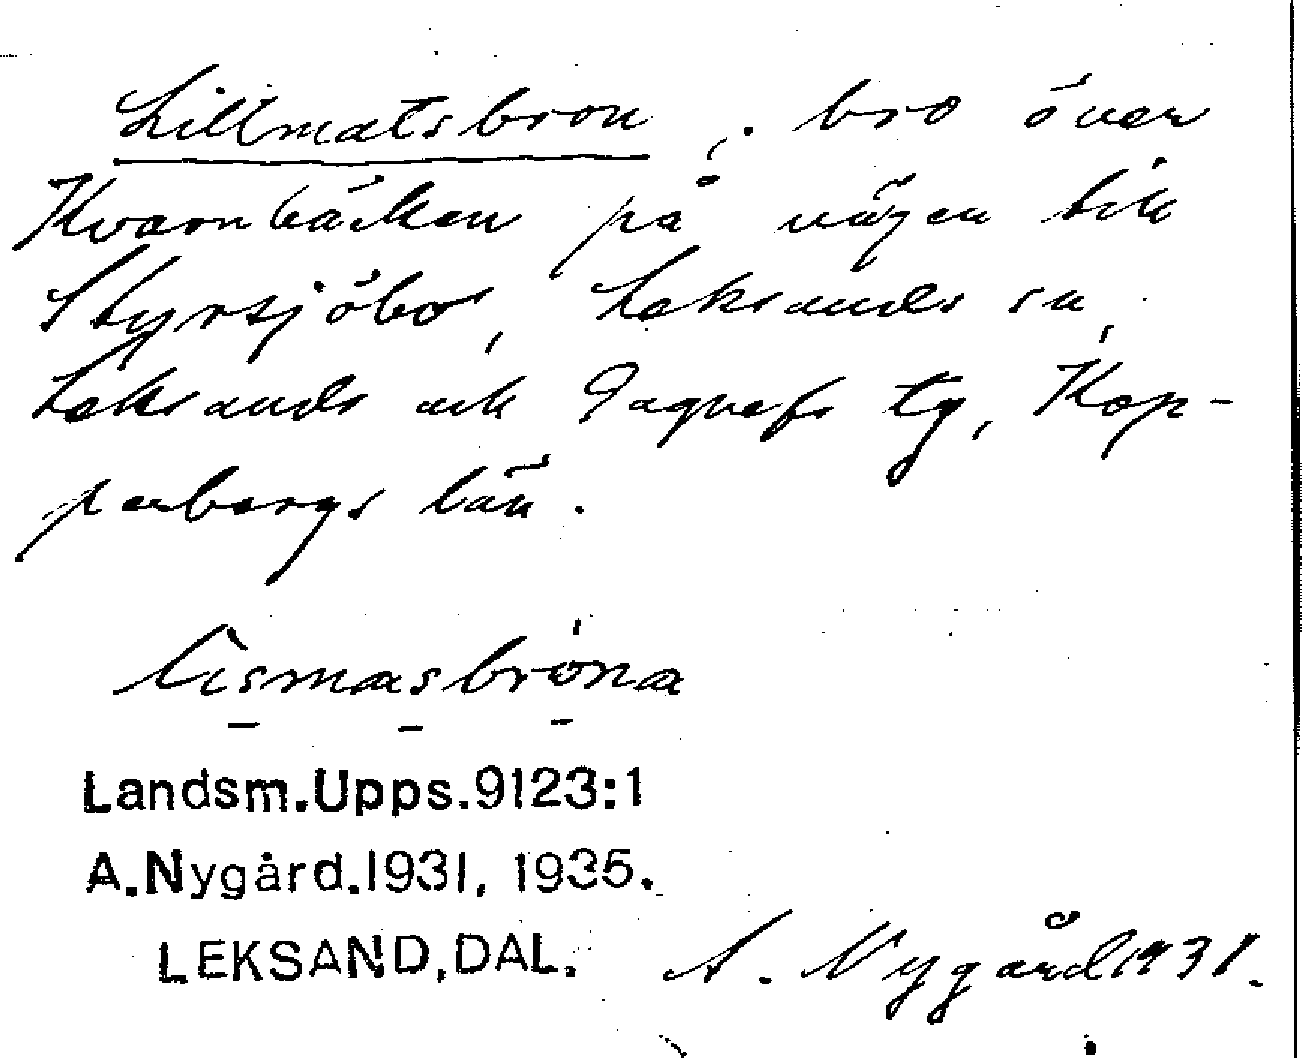 Lillmatsbron, bro över
Kvarnbäcken på vägen till
Styrsjöbo, Leksands sn,
Leksands och Gagnefs tg, Kop-
parbergs län.
lismasbröna
Landsm.Upps.9123:1
A.Nygård.1931, 1935.
LEKSAND,DAL.
A. Nygård 1931.